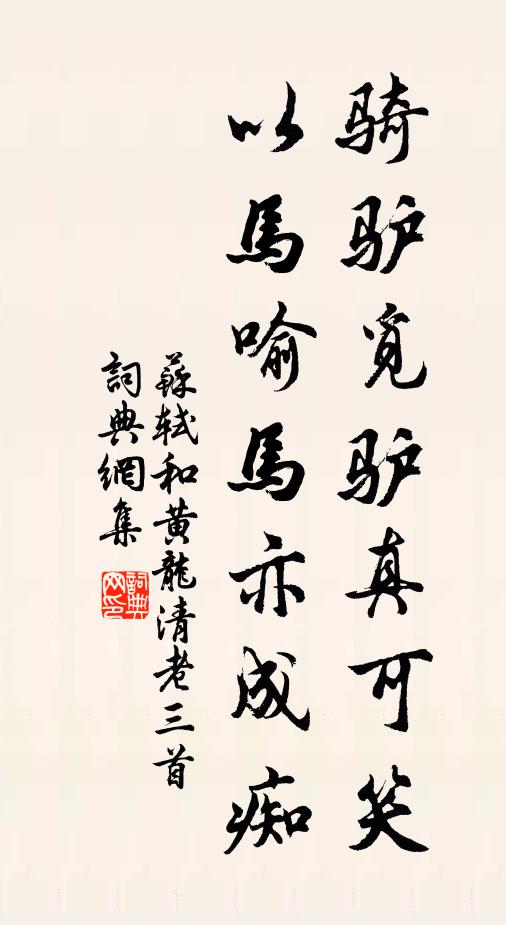 骑驴觅驴真可笑
以馬喻馬亦成痴
蘇軾和黄龍清老三首
詞典網集
詞典网印